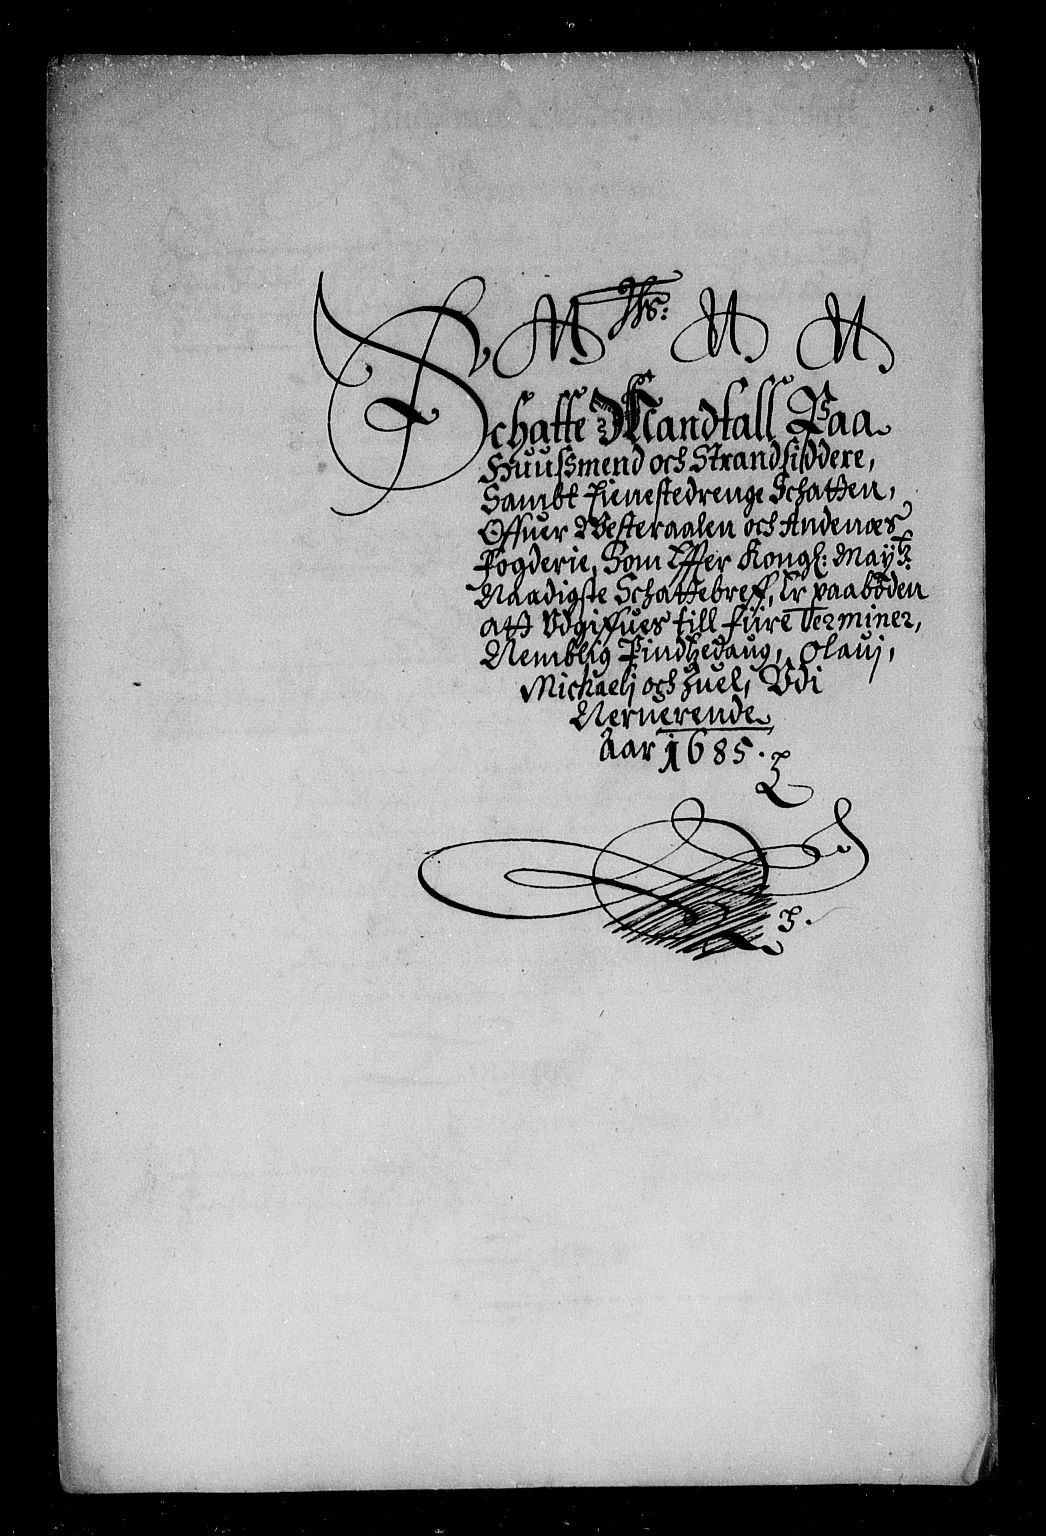 Schatte Mandtall Paa
Huusmend och Strandsiddere,
Sambt Tienestedrenge Schatten,
Offuer Westeraalen och Andenæs
Fogderie, Som Effter Kongl: May:
Naadigste Schattebreff, Er paabōden
att Vdgiffues till fiire Terminer,
Nemblig Pindtzedaug, Olauj,
Michaelj och Juel, Vdi
Nerverende
Aar 1685.